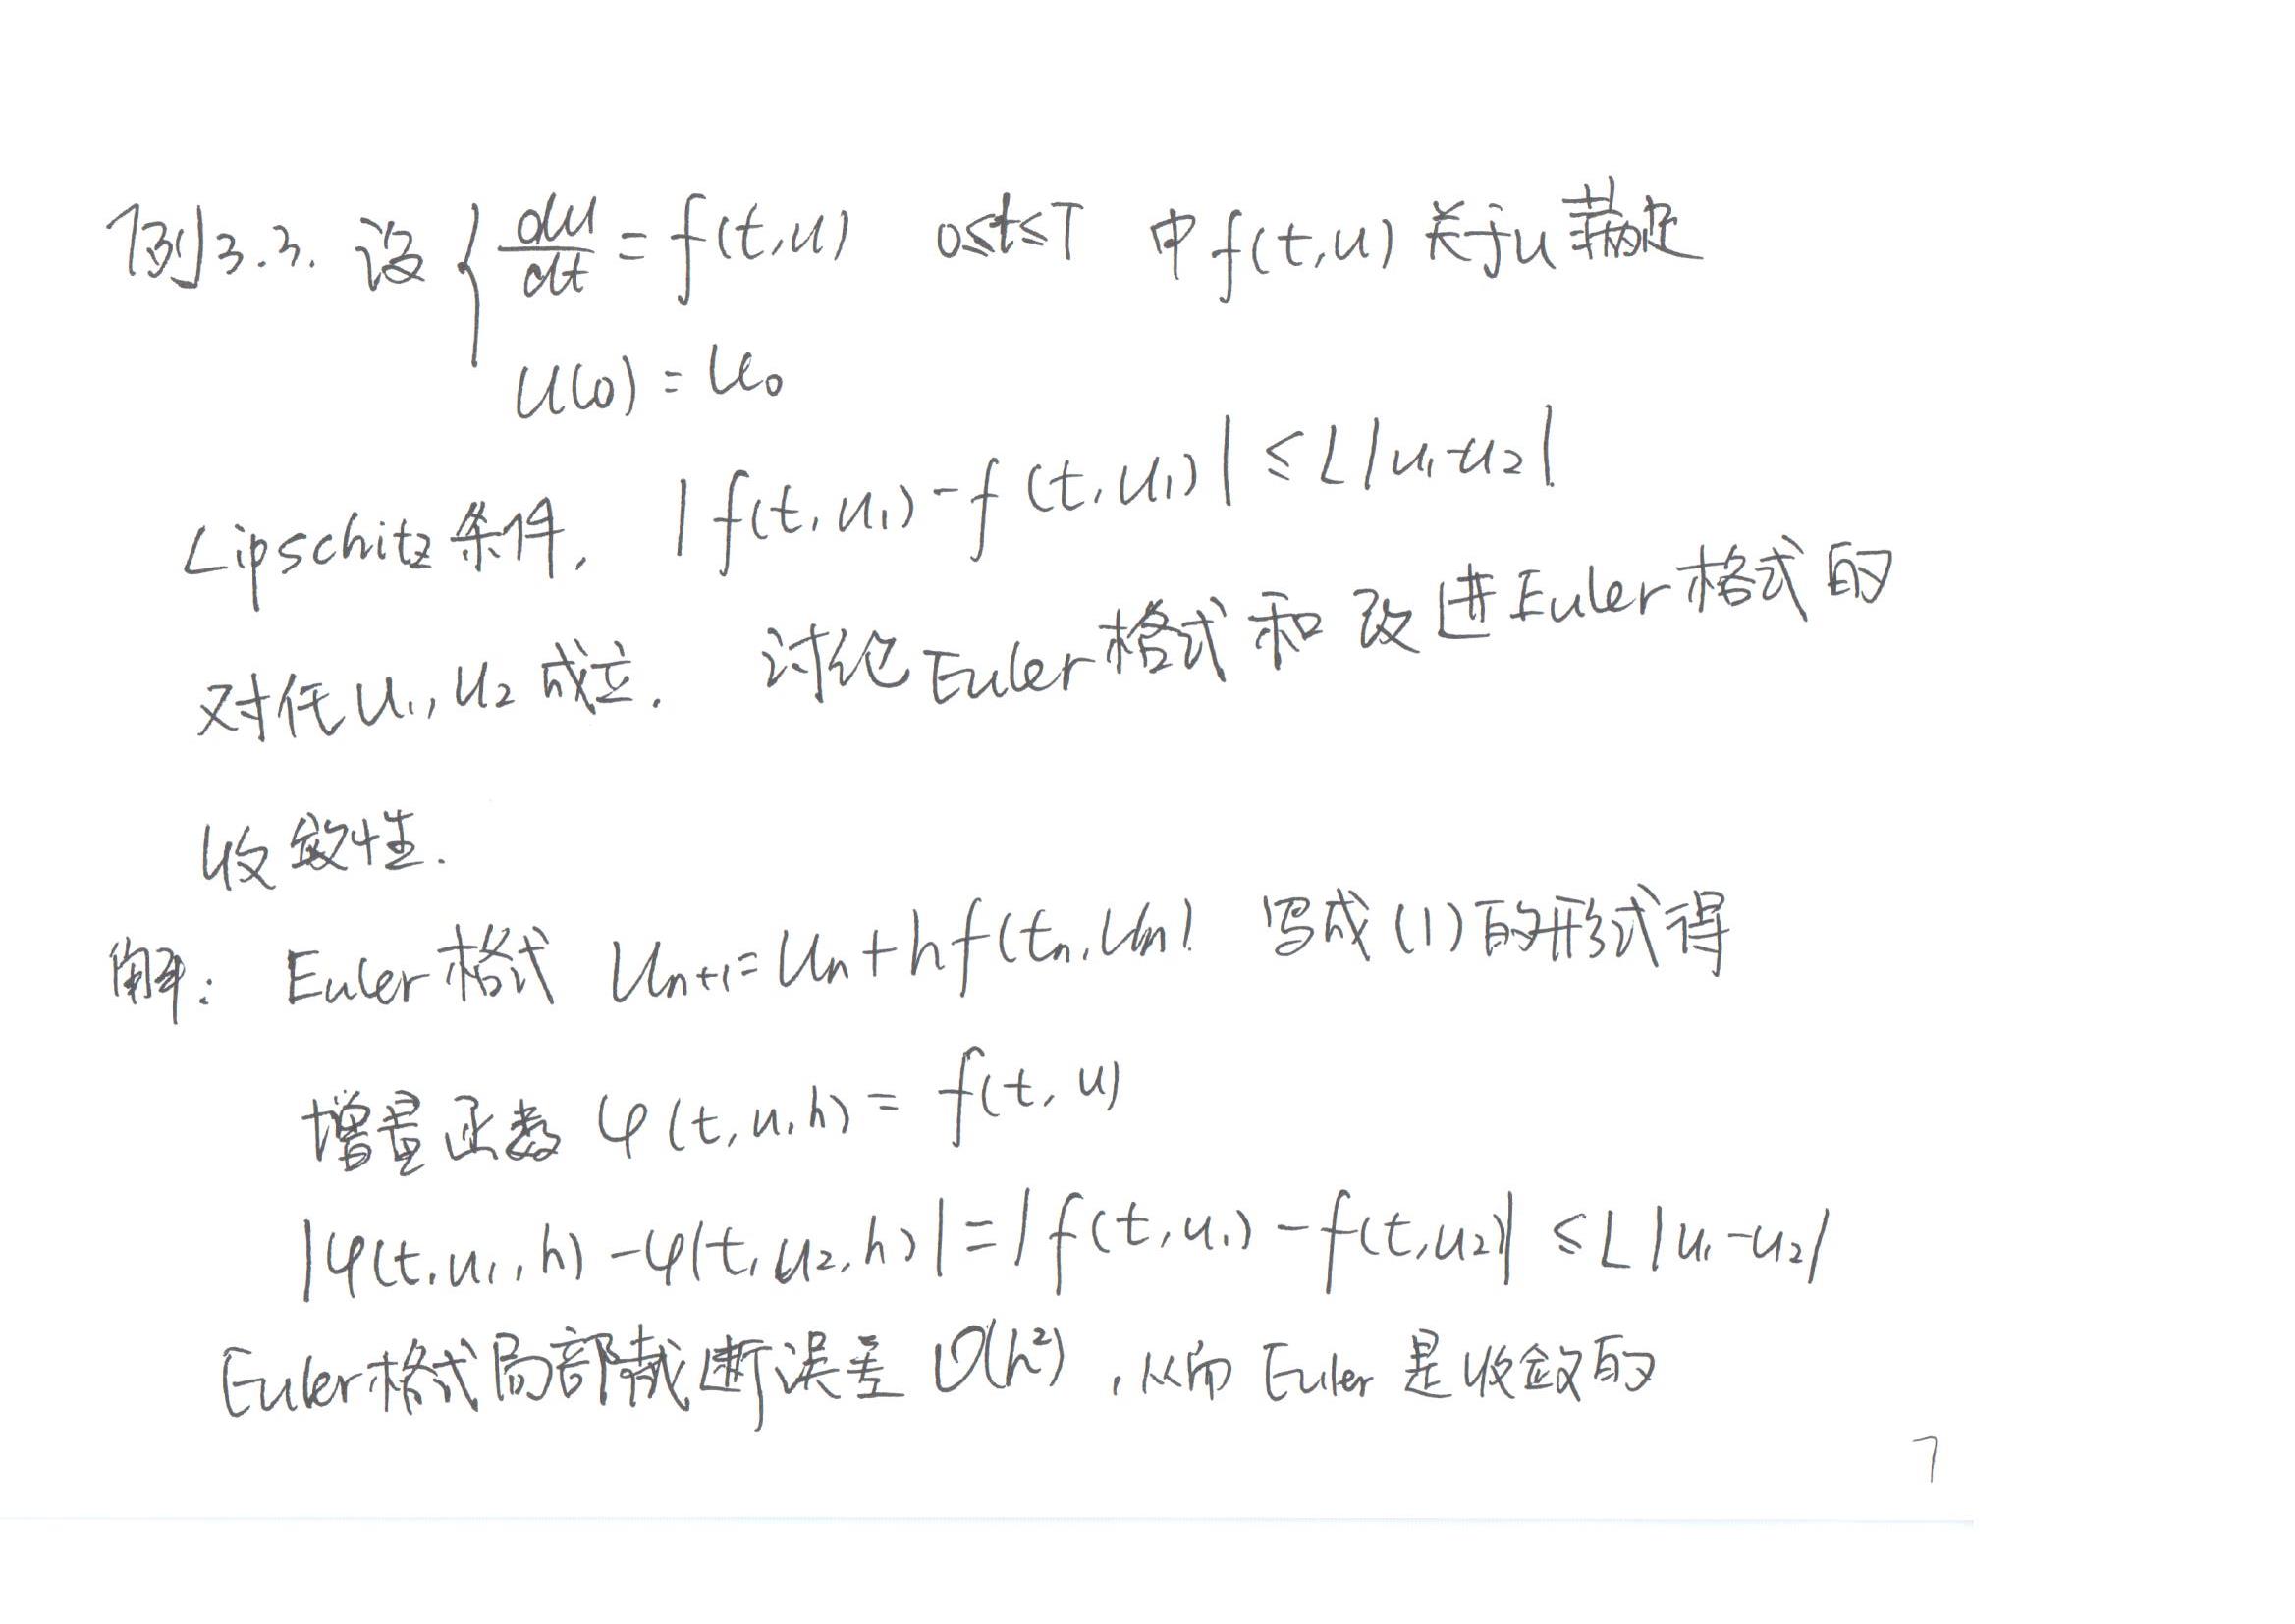 例3.3. 设 { du/dt = f(t,u) 0≤t≤T 中 f(t,u) 关于u 满足
u(0) = u₀
Lipschitz条件, |f(t,u₁) - f(t,u₁)| ≤ L|u₁-u₂|
对任u₁,u₂成立. 讨论Euler格式和改进Euler格式的
收敛性.
解: Euler格式 Uₙ₊₁=Uₙ+hf(tₙ,Uₙ) 写成(1)的形式得
增量函数 φ(t,u,h) = f(t,u)
|φ(t,u₁,h) - φ(t,u₂,h)| = |f(t,u₁) - f(t,u₂)| ≤ L|u₁-u₂|
Euler格式局部截断误差 O(h²), 从而 Euler 是收敛的
7